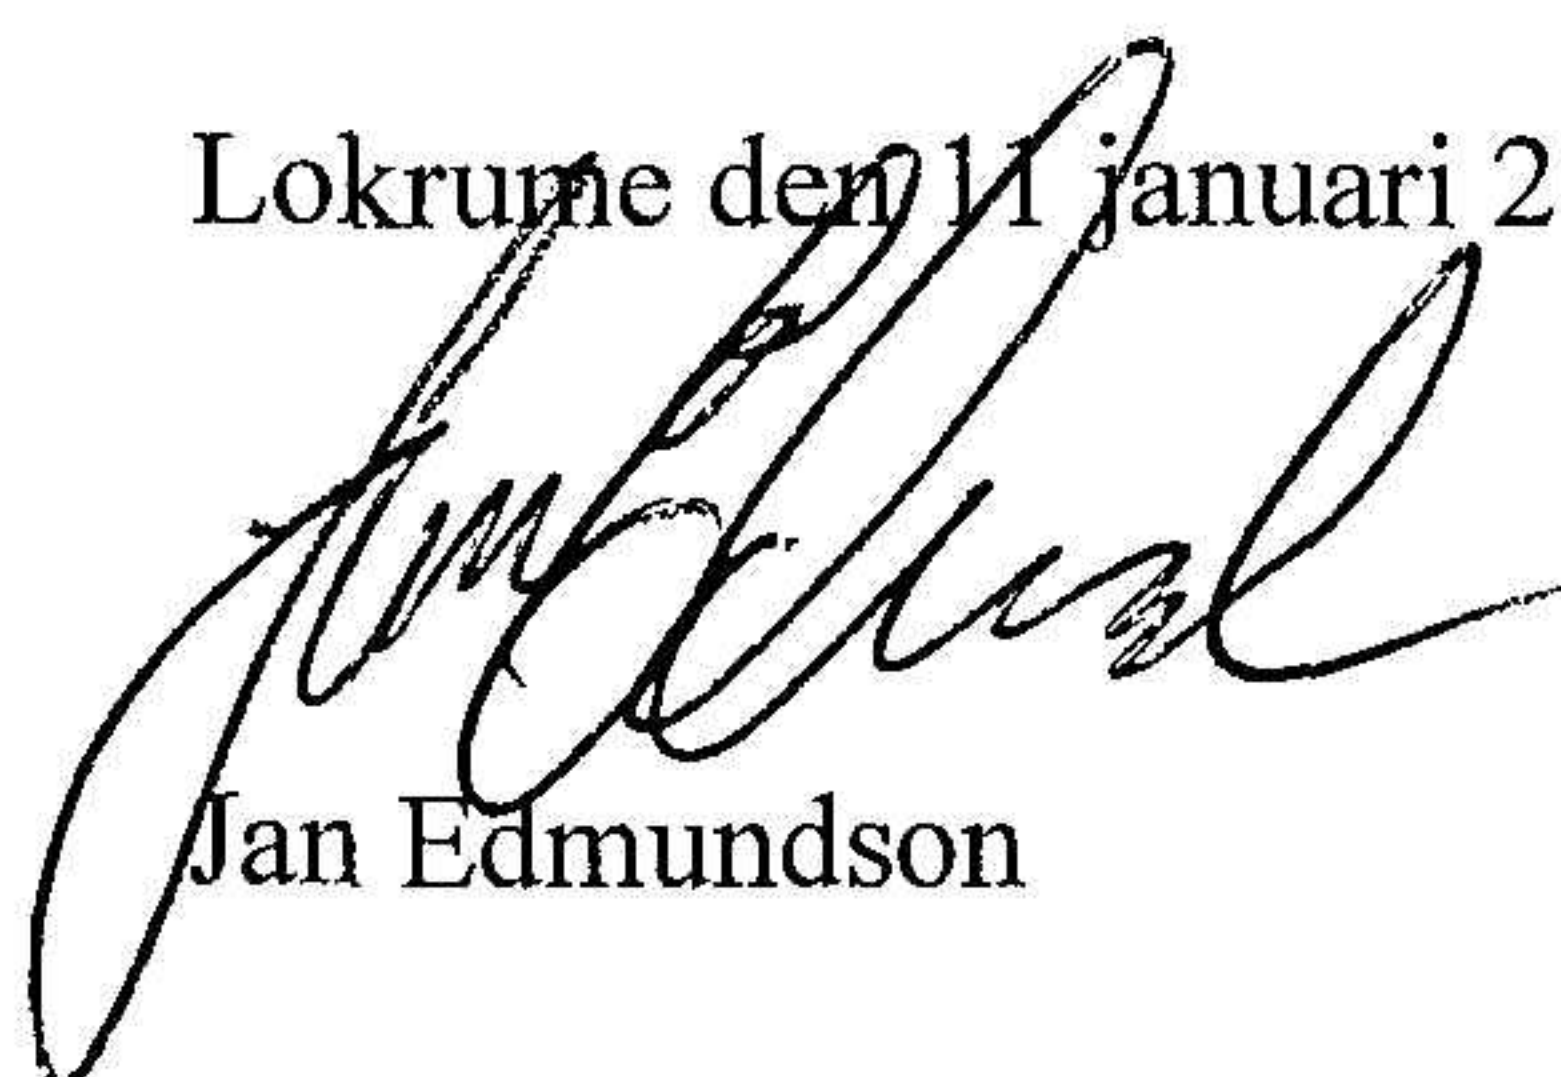 Lokrume den 11 januari 2
Jan Edmundson